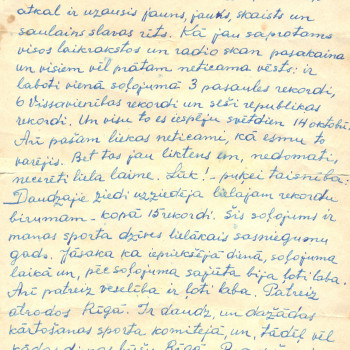 atkal ir uzausis jauns, jauks, skaists un
saulains slavas rīts. Kā jau saprotams
visos laikrakstos un radio skan pasakaina
un visiem vēl prātam neticama vēsts: ir
laboti vienā soļojumā 3 pasaules rekordi,
6 Vissavienības rekordi un seši republikas
rekordi. Un visu to es iespēju svētdien 14 oktobrī.
Arī pašam liekas neticami, kā esmu to
varējis. Bet tas jau liktens
necerēti liela laime. Lūk! - puķei taisnība:
Daudzaje ziedi uzziedēja lielajam rekordu
birumam - kopā 15 rekordi. Šis soļojums ir
manas sporta dzīves lielākais sasniegumu
gads. Jāsaka ka iepriekšējā dienā, soļojuma
laikā un, pēc soļojuma sajūta bija ļoti laba.
Arī patreiz veselība ir ļoti laba. Patreiz
atrodos Rīgā. Ir daudz, un dažādas
kārtošanas sporta komitejā, un, tādēļ vēl
Rīgā.